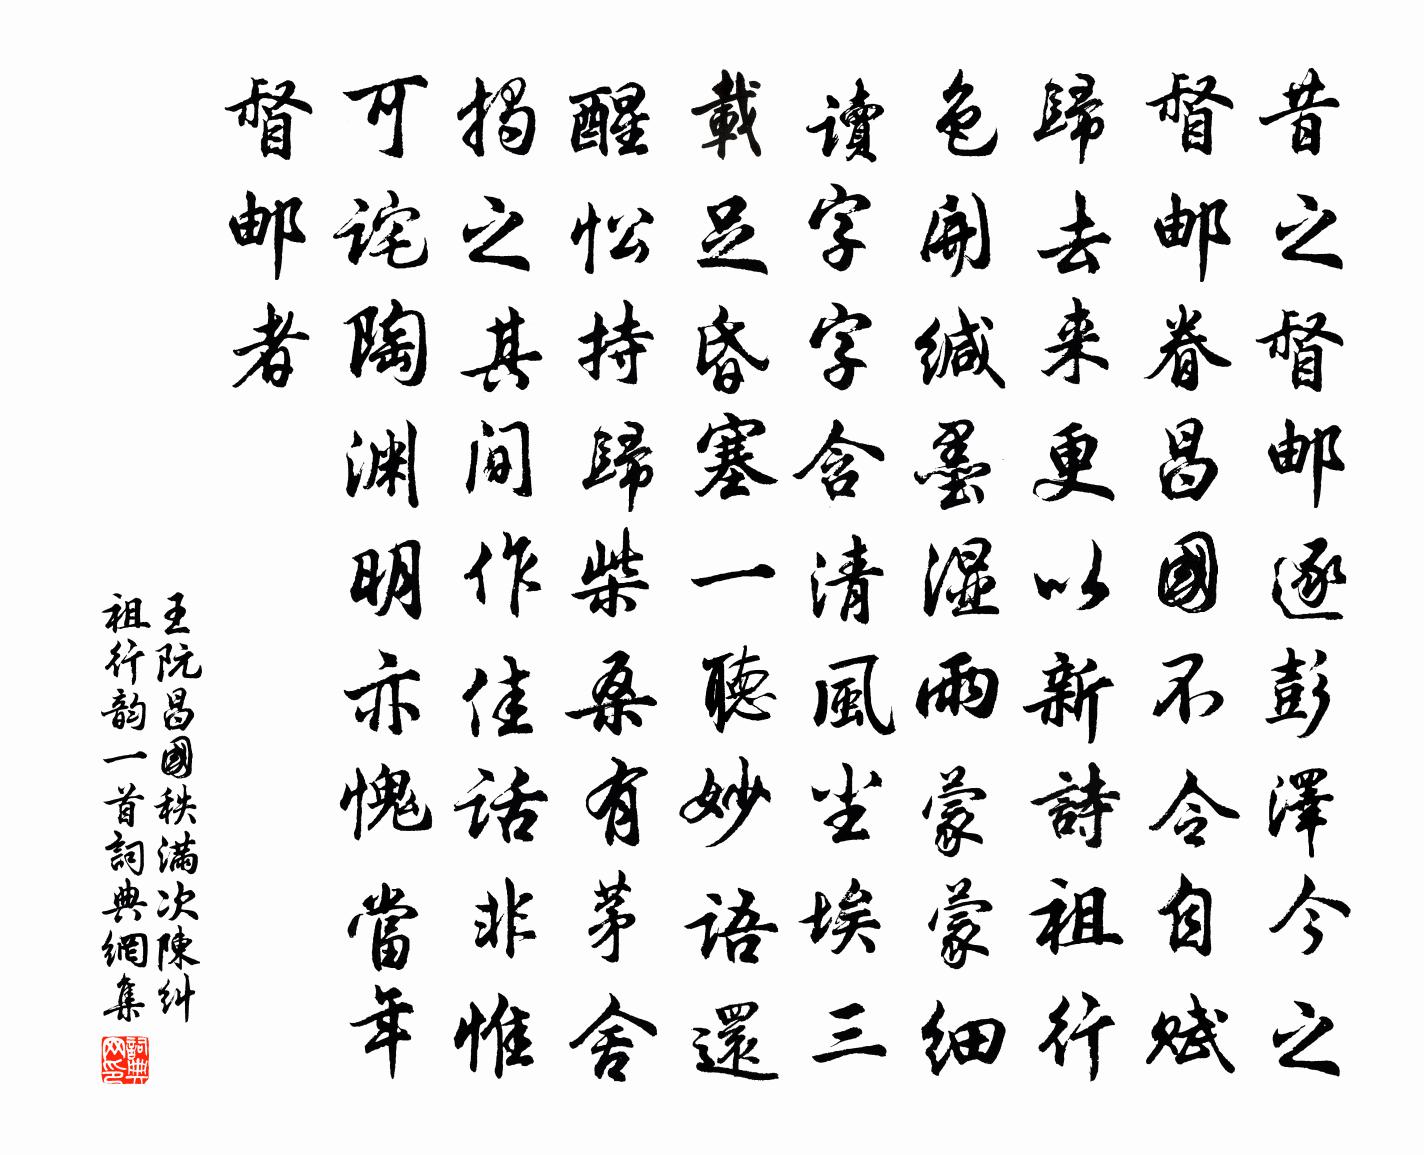 昔之督邮逐彭澤今之
督邮眷昌國不令自赋
歸去来更以新詩祖行
色開緘墨濕雨蒙蒙细
讀字字含清風坐埃三
載足昏塞一聽妙語還
醒忪持歸柴桑有茅舍
揭之其间作佳话非惟
可詫陶渊明亦愧當年
督邮者
王阮昌國秩满次陳糾
祖行韵一首詞典網集
詞典网